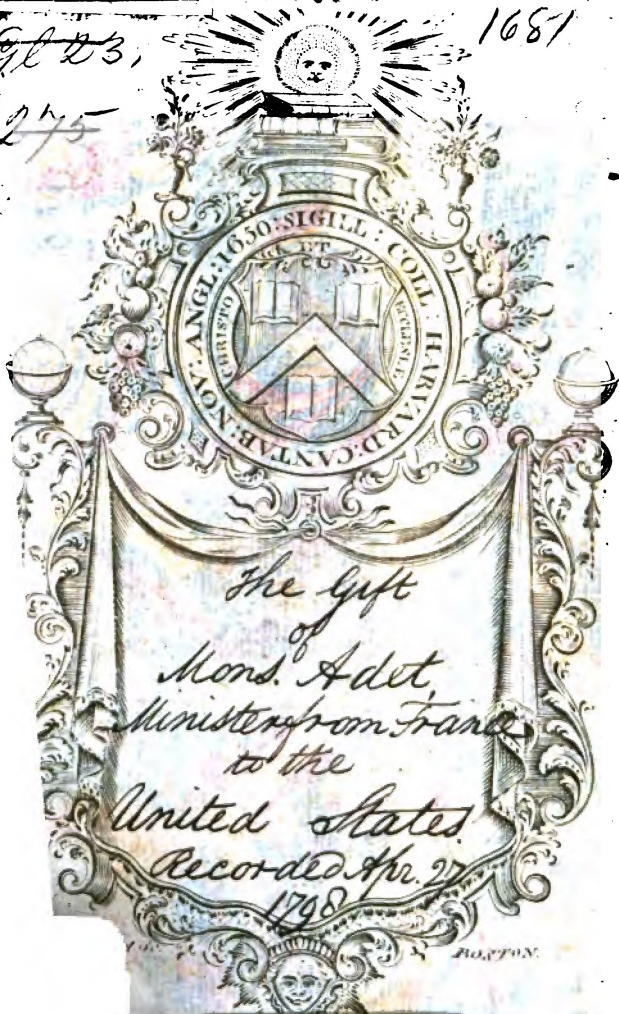 1681
23,
275
SIGILL : COLL : HARVARD : CANTAB : NOV : ANGL : 1650 :
CHRISTO ET ECCLESIÆ
The Gift
of
Mons. Adet,
Minister from France
to the
United States
Recorded Apr. 27
1798
BOSTON.